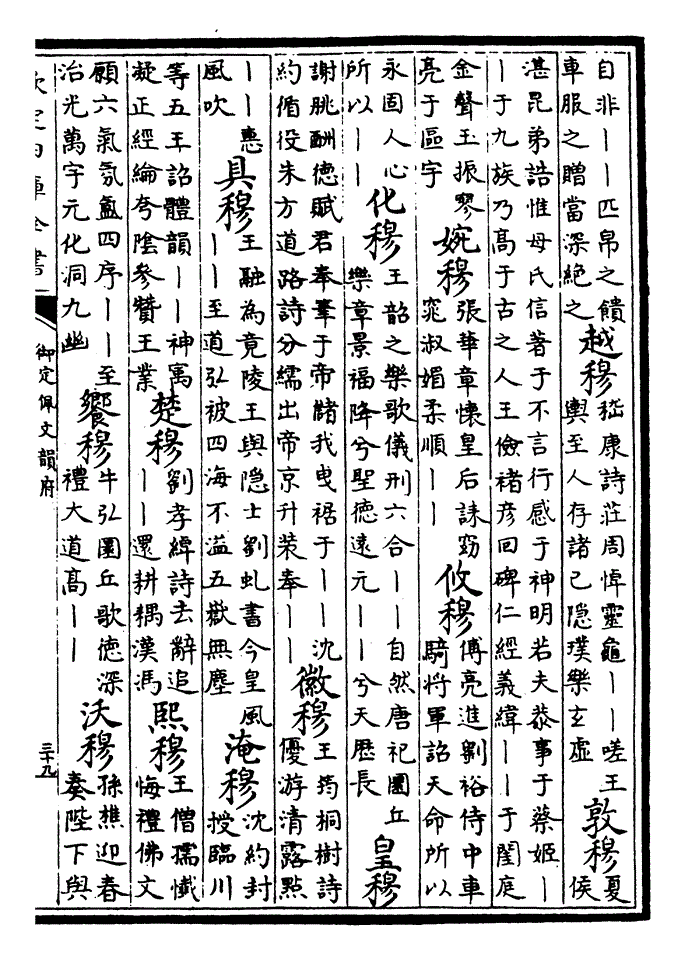 自非丨丨匹帛之饋
車服之贈當深絶之
越穆
嵇康詩莊周悼靈龜丨丨嗟王
輿至人存諸已隱璞樂玄虛
敦穆
夏
侯
湛昆弟誥惟母氏信著于不言行感于神明若夫恭事于蔡姬丨
丨于九族乃髙于古之人王儉褚彦回碑仁經義緯丨丨于閨庭
金聲玉振寥
亮于區宇
婉穆
張華章懷皇后誄窈
窕淑媚柔順丨丨
攸穆
傅亮進劉裕侍中車
騎將軍詔天命所以
永固人心
所以丨丨
化穆
王韶之樂歌儀刑六合丨丨自然唐祀圜丘
樂章景福降兮聖德逺元丨丨兮天歴長
皇穆
謝脁酬德賦君奉筆于帝儲我曵裾于丨丨沈
約循役朱方道路詩分繻出帝京升装奉丨丨
徽穆
王筠桐樹詩
優游清露㸃
丨丨惠
風吹
具穆
王融為竟陵王與隐士劉虬書今皇風
丨丨至道弘被四海不溢五嶽無塵
淹穆
沈約封
授臨川
等五王詔體韻丨丨神寓
凝正經綸夸陰參贊王業
楚穆
劉孝綽詩去辭追
丨丨還耕耦漢馮
熙穆
王僧孺懺
悔禮佛文
願六氣氛氲四序丨丨至
治光萬宇元化洞九幽
饗穆
牛弘圜丘歌徳深
禮大道髙丨丨
沃穆
孫樵迎春
奏陛下與
欽定四庫全書
御定佩文韻府
三十九